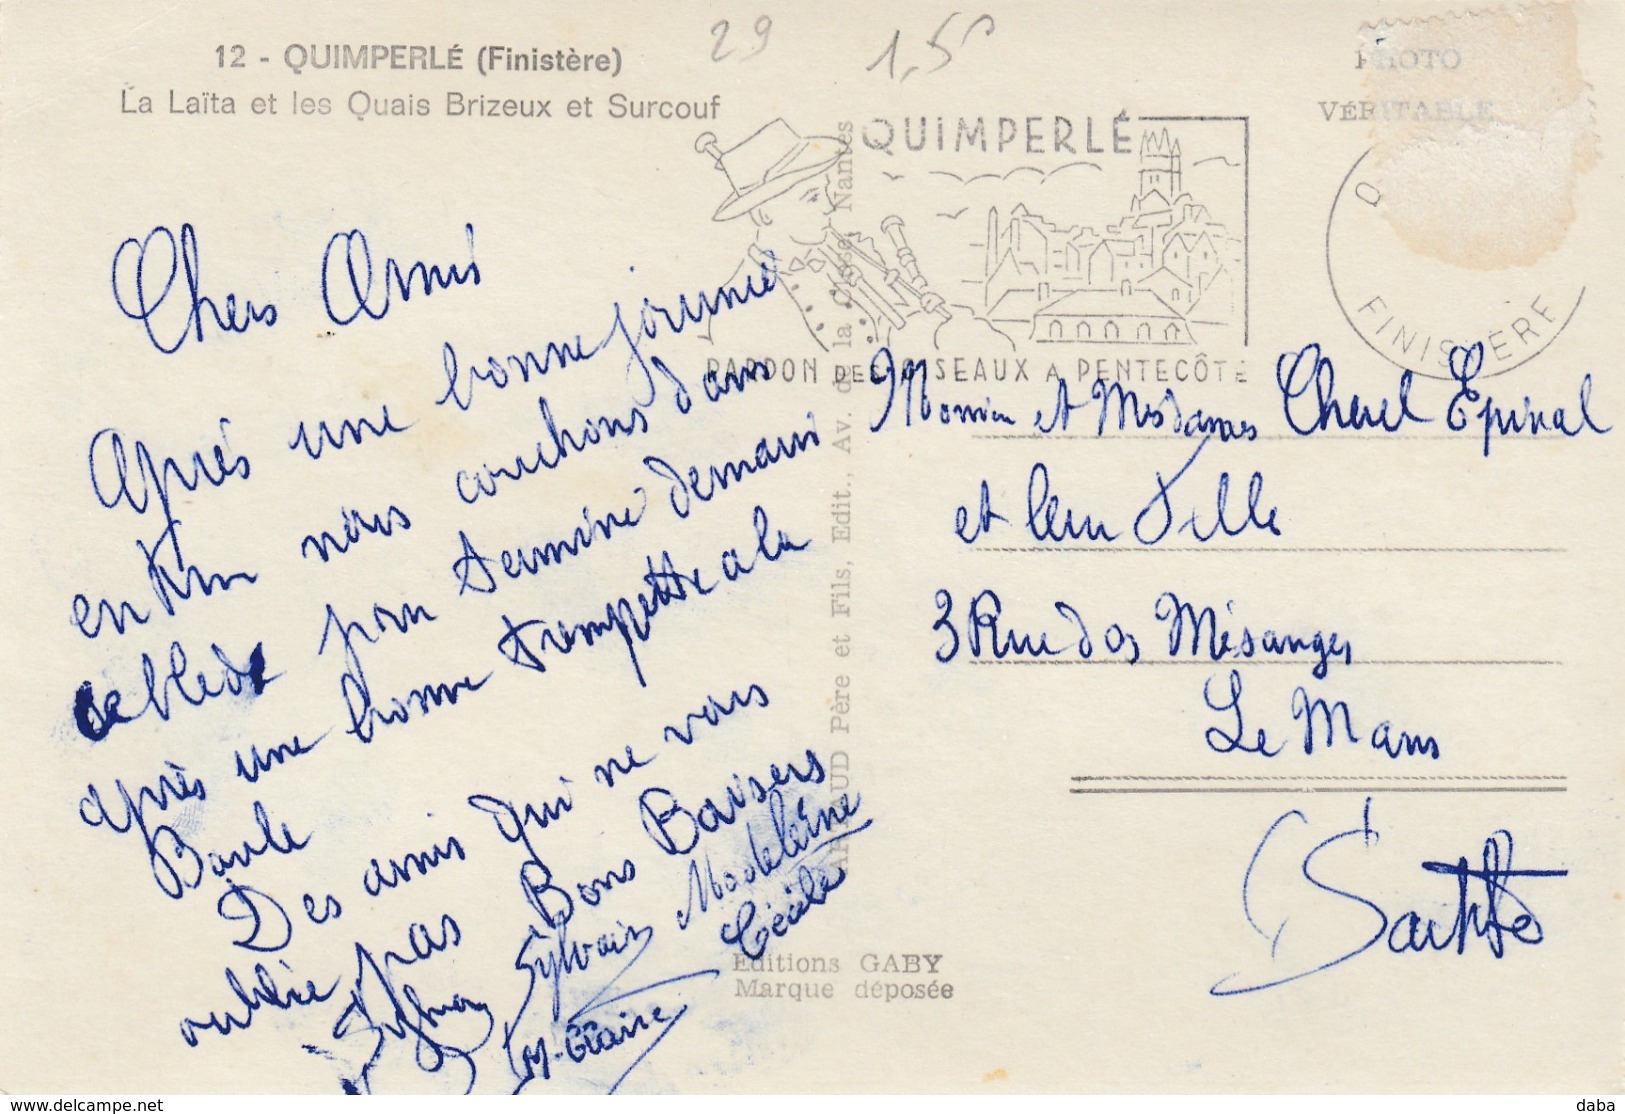 29
1,50
12 - QUIMPERLÉ (Finistère)
La Laïta et les Quais Brizeux et Surcouf
PHOTO
VÉRITABLE
QUIMPERLÉ
PARDON DES OISEAUX A PENTECÔTE
FINISTÈRE
Chers Amis
Après une bonne journée
en nous couchons dans
ce bled pour terminé demain
après une bonne trempette a la
Baule
Des amis qui ne vous
oublie pas Bons Baisers
Sylvain Madeleine
Cécile
M-Claire
ARTAUD Père et Fils, Edit., Av. de la Close, Nantes
Editions GABY
Marque déposée
et leur Fille
3 Rue des Mésanges
Le Mans
Sarthe
www.delcampe.net
daba